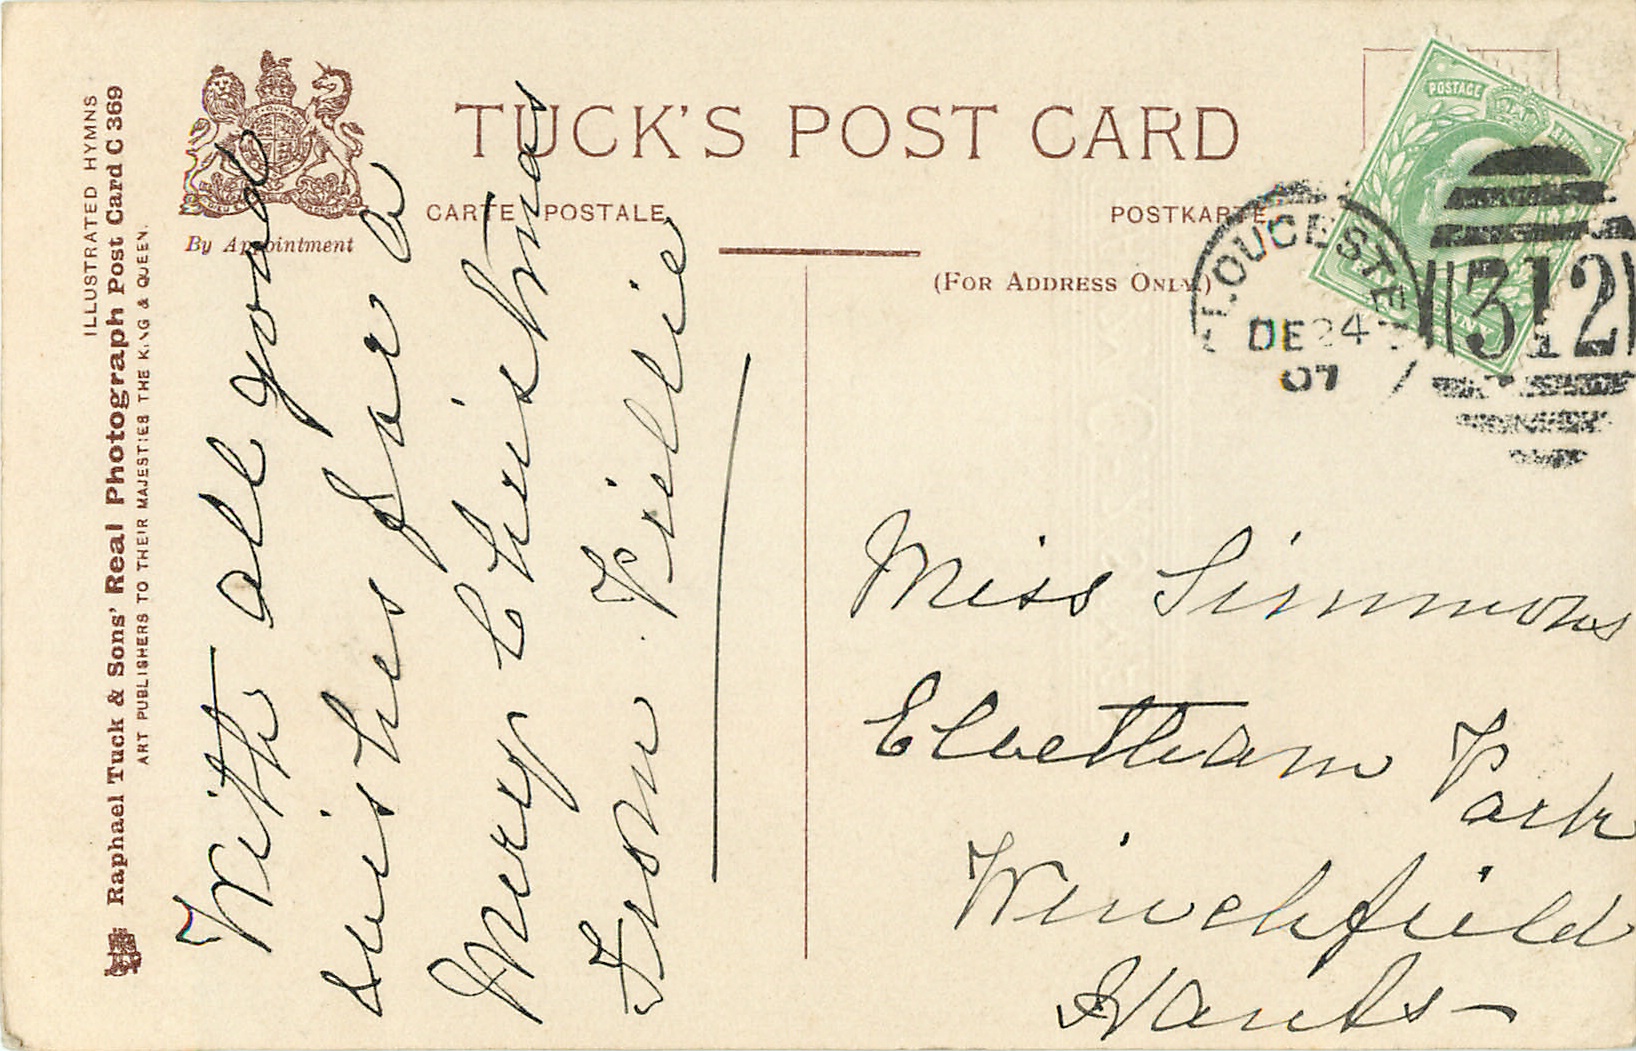 ILLUSTRATED HYMNS
Raphael Tuck & Sons' Real Photograph Post Card C 369
ART PUBLISHERS TO THEIR MAJESTIES THE KING & QUEEN.
By Appointment
TUCK'S POST CARD
CARTE POSTALE
POSTKARTE
(FOR ADDRESS ONLY.)
POSTAGE
GLOUCESTER
DE 24
07
312
With all good
wishes for a
Merry Christmas
From Willie
Miss Simmons
Elvetham Park
Winchfield
Hants -